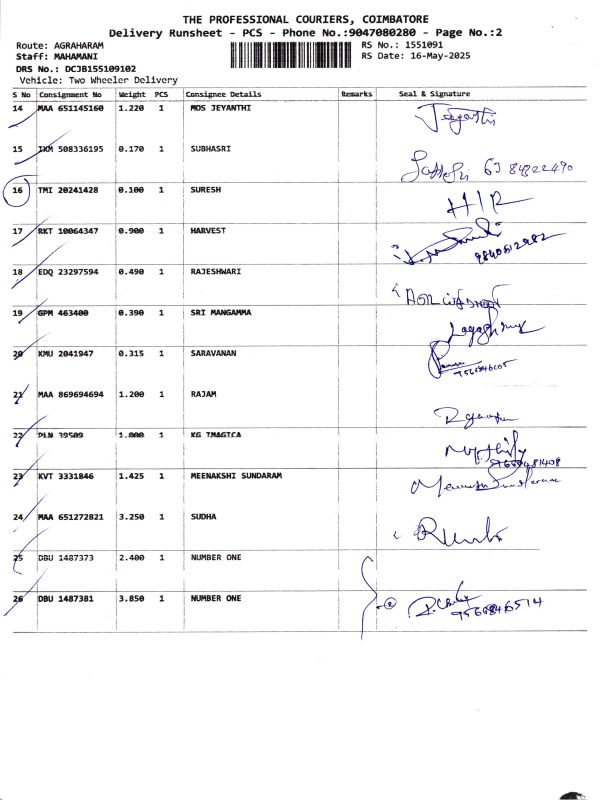 THE PROFESSIONAL COURIERS, COIMBATORE
Delivery Runsheet - PCS - Phone No.:9047080280 - Page No.:2
Route: AGRAHARAM RS No.: 1551091
Staff: MAHAMANI RS Date: 16-May-2025
DRS No.: DCJB155109102
Vehicle: Two Wheeler Delivery
S No Consignment No Weight PCS Consignee Details Remarks Seal & Signature
14 MAA 651145160 1.220 1 MOS JEYANTHI
15 IXM 508336195 0.170 1 SUBHASRI
16 TMI 20241428 0.100 1 SURESH
17 RKT 10064347 0.900 1 HARVEST
18 EDQ 23297594 0.490 1 RAJESHWARI
19 GPM 463400 0.390 1 SRI MANGAMMA
20 KMU 2041947 0.315 1 SARAVANAN
21 MAA 869694694 1.200 1 RAJAM
22 PLN 39509 1.000 1 KG IMAGICA
23 KVT 3331846 1.425 1 MEENAKSHI SUNDARAM
24 MAA 651272821 3.250 1 SUDHA
25 DBU 1487373 2.400 1 NUMBER ONE
26 DBU 1487381 3.850 1 NUMBER ONE